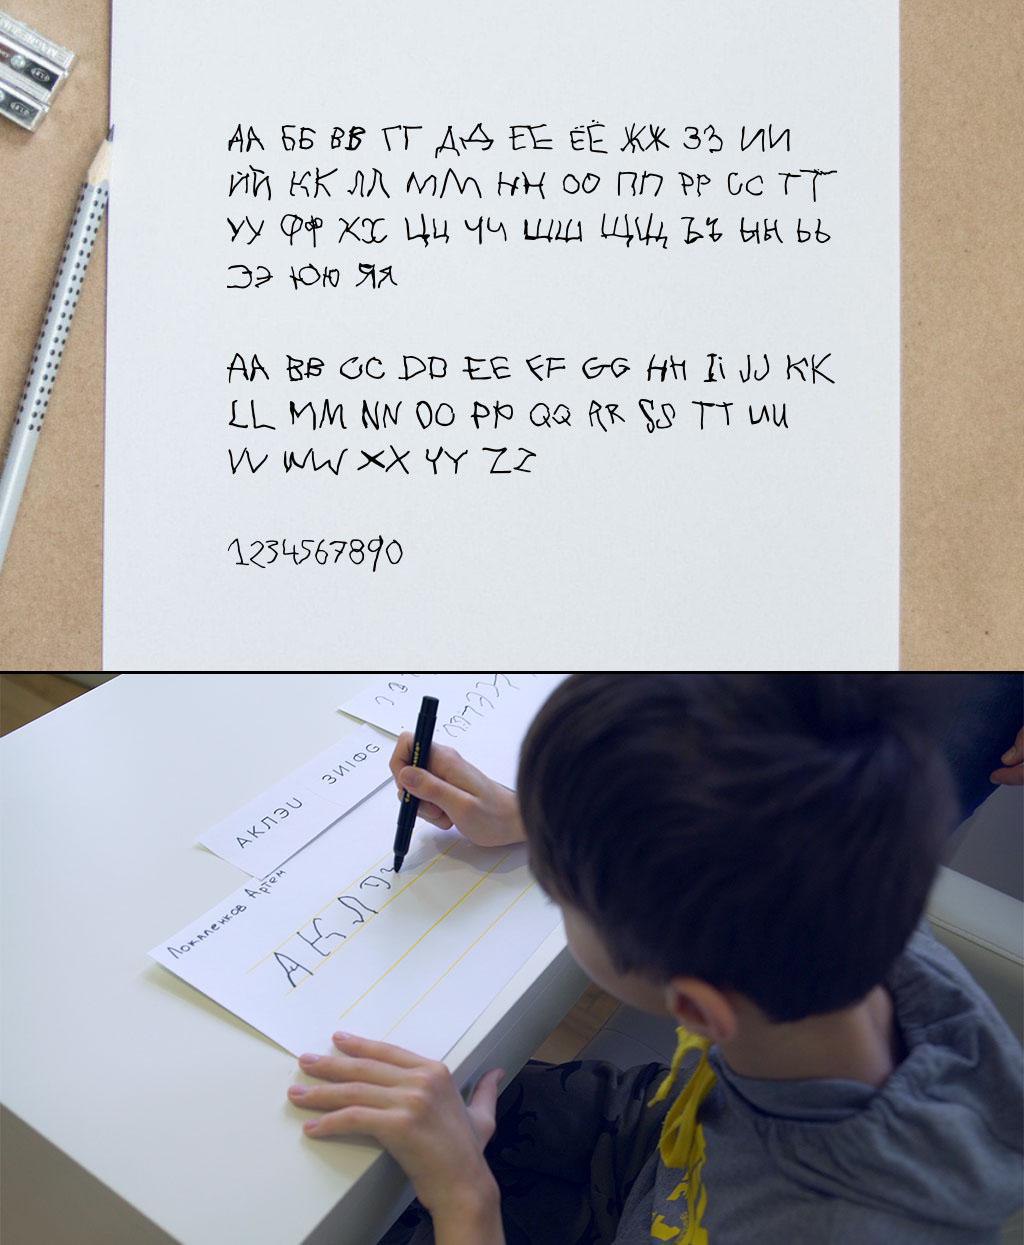 АА ББ ВВ ГГ ДД ЕЕ ЁЁ ЖЖ ЗЗ ИИ
ЙЙ КК ЛЛ ММ НН ОО ПП РР СС ТТ
УУ ФФ ХХ ЦЦ ЧЧ ШШ ЩЩ ЪЪ ЫЫ ЬЬ
ЭЭ ЮЮ ЯЯ
AA BB CC DD EE FF GG HH Ii JJ KK
LL MM NN OO PP QQ RR SS TT UU
VV WW XX YY ZZ
1234567890
АКЛЭЦ ЗИІФG
Локаленков Артём
А К Л Э